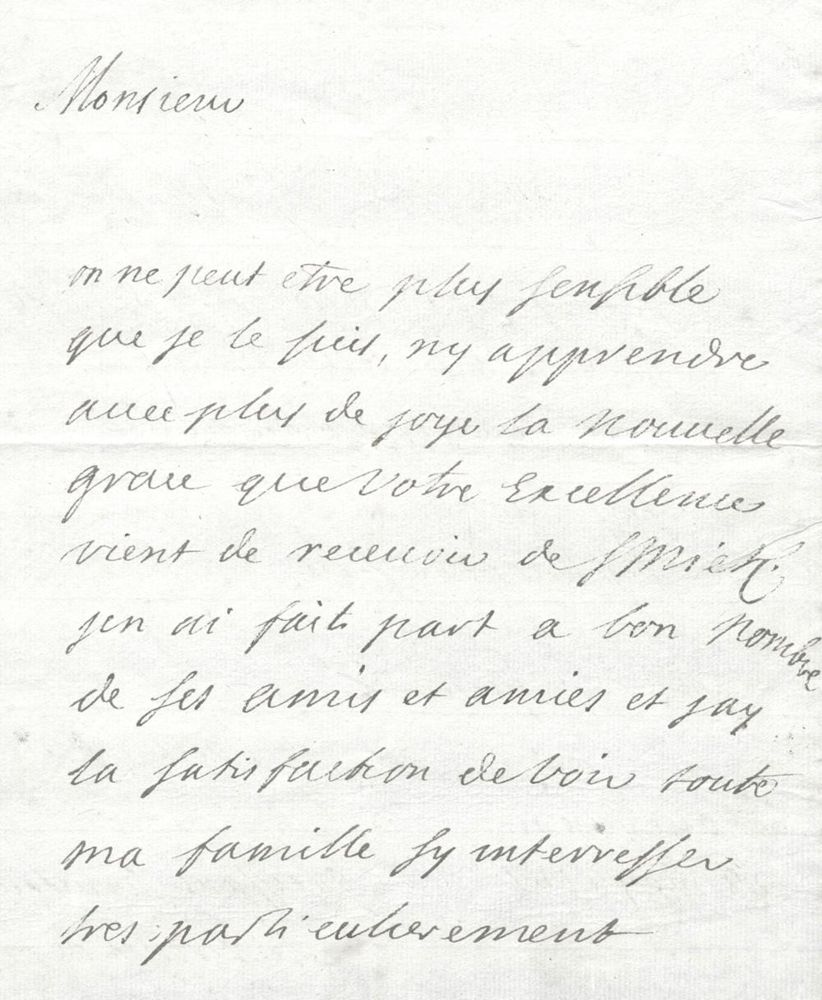 Monsieur
on ne peut etre plus sensible
que je le suis, ny apprendre
auec plus de joye la nouuelle
grace que Votre Excellence
vient de receuoir de
jen ai fait part a bon nombre
de ses amis et amies et jay
la satisfaction de voir toute
ma famille sy interresser
tres particulierement